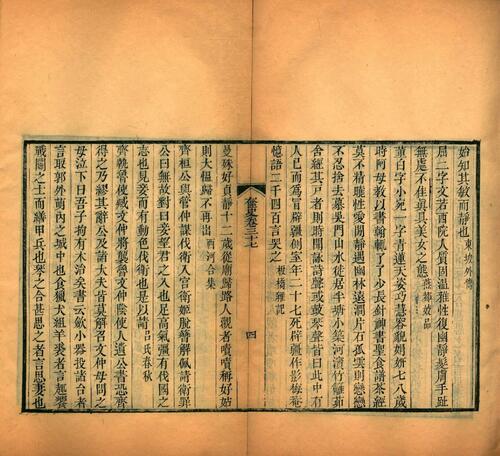 始知其敏而靜也東坡外傳
屈二字文若西院人質固溫雅性復幽靜髮膚手趾
無處不佳與具美女之態燕都妓品
董白字小宛一字青蓮天姿巧慧容貌娟妍七八歲
時阿母教以書翰輒了了少長針神曲聖食譜茶經
莫不精曉性愛閒靜遇幽林遠澗片石孤雲則戀戀
不忍捨去慕吳門山水徙居半塘小築河濱竹籬茆
舍經其戶者則時聞詠詩聲或鼓琴聲皆曰此中有
人已而為冒辟疆側室年二十七死辟疆作影梅菴
憶語二千四百言哭之板橋雜記
奩史卷三十七
四
曼殊好貞靜十二歲從廟歸路人觀者嘖嘖稱好姑
則大慍歸不再出西河合集
齊桓公與管仲謀伐衛入宮衛姬脫簪解佩請衛罪
公曰無故對曰妾望君之入也足高氣彊有伐國之
志也見妾而有動色伐衛也是以請呂氏春秋
齊執魯使臧文仲將襲魯文仲陰使人遺公書恐齊
得之乃繆其辭公及諸大夫皆莫解召文仲母問之
母泣下曰吾子拘有木治矣書云斂小器投諸台者
言取郭外萌內之城中也食獵犬組羊裘者言趣饗
戰鬭之士而繕甲兵也琴之合甚思之者言思妻也